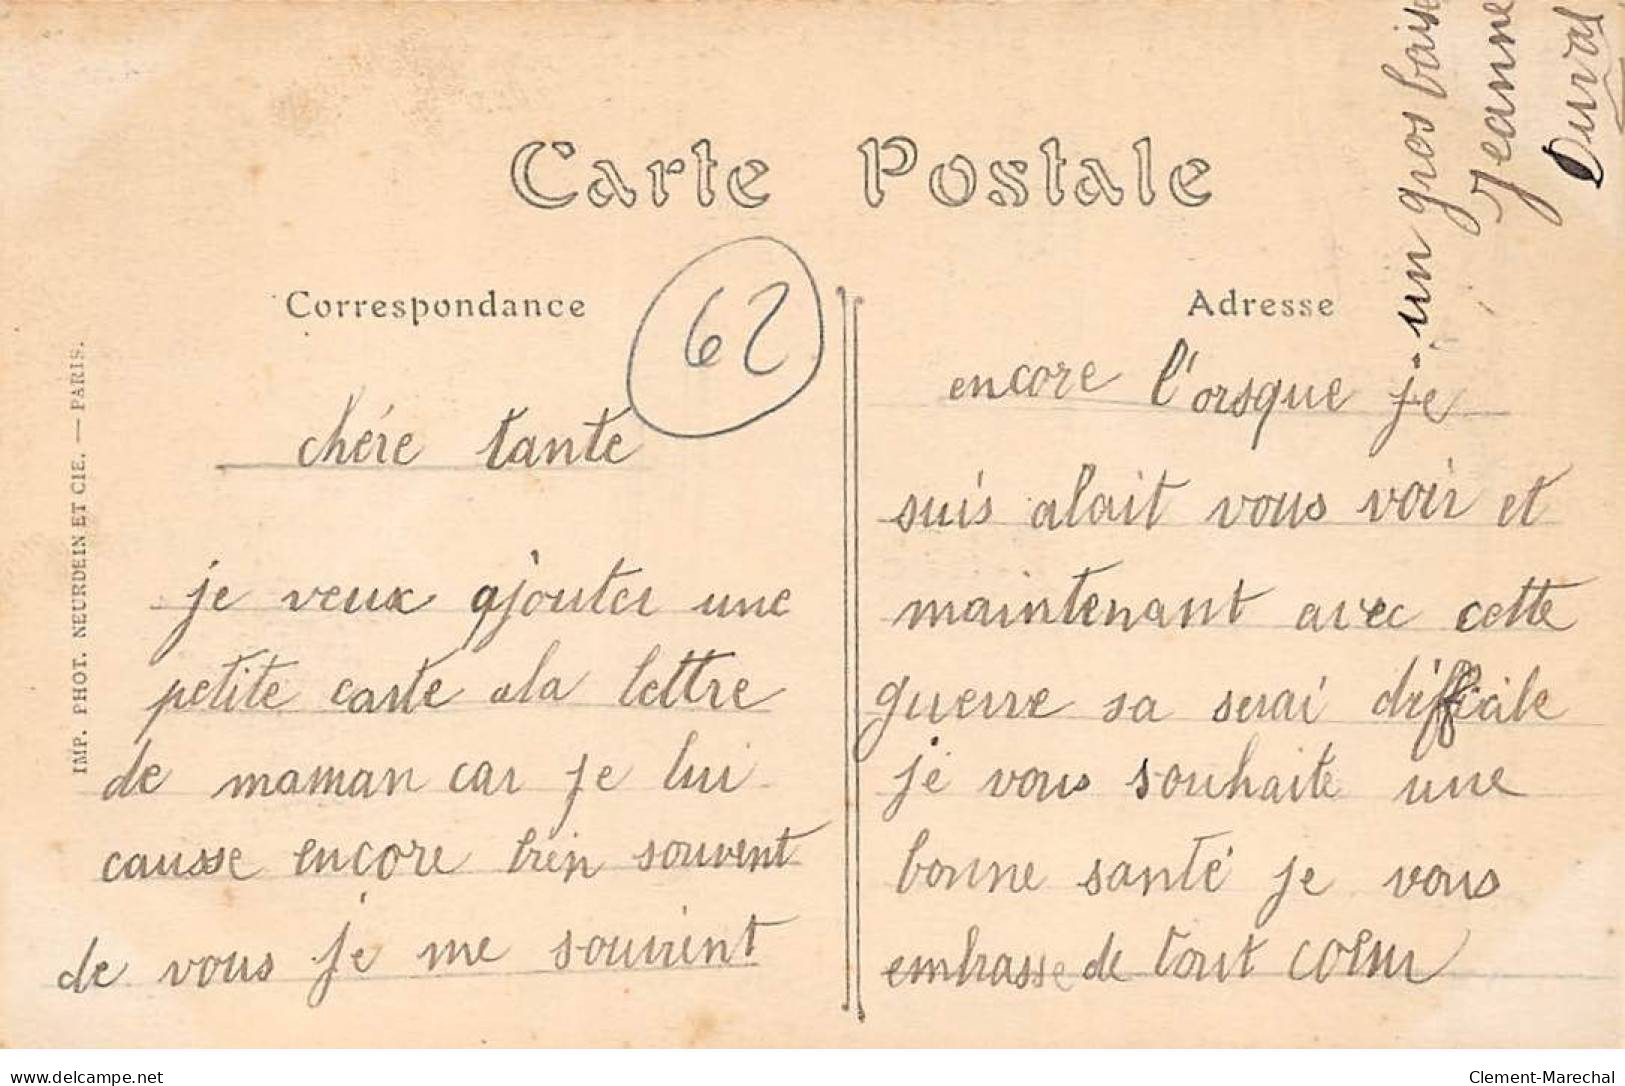 Carte Postale
Correspondance
62
Adresse
IMP. PHOT. NEURDEIN ET CIE. — PARIS.
chére tante
je veux ajouter une
petite carte ala lettre
de maman car je lui
causse encore bien souvent
de vous je me souvient
encore l'orsque je
suis alait vous voir et
maintenant avec cette
guerre sa serai difficile
je vous souhaite une
bonne santé je vous
embrasse de tout coeur
un gros baise
Jeanne
Duval
delcampe.net
Clement-Marechal